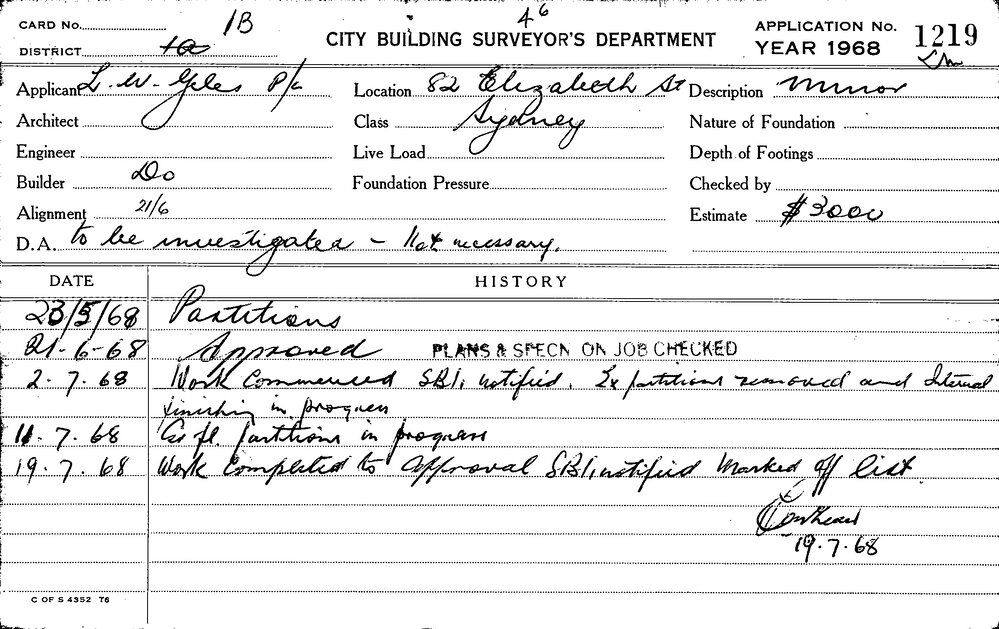 CARD No. 1B
46
APPLICATION No. 1219
DISTRICT
CITY BUILDING SURVEYOR'S DEPARTMENT
YEAR 1968
Applicant L. W. Giles P/L
Location 82 Elizabeth St
Description Minor
Architect
Class Sydney
Nature of Foundation
Engineer
Live Load
Depth of Footings
Builder Do
Foundation Pressure
Checked by
Alignment 21/6
Estimate $3000
D.A. to be investigated - Not necessary.
DATE HISTORY
23/5/68 Partitions
21-6-68 Approved PLANS & SPECN ON JOB CHECKED
2.7.68 Work Commenced SBI. notified. Ex partitions removed and Internal
finishing in progress
11.7.68 partitions in progress
19.7.68 Work Completed to approval SBI. notified Marked off list
19.7.68
C OF S 4352 76